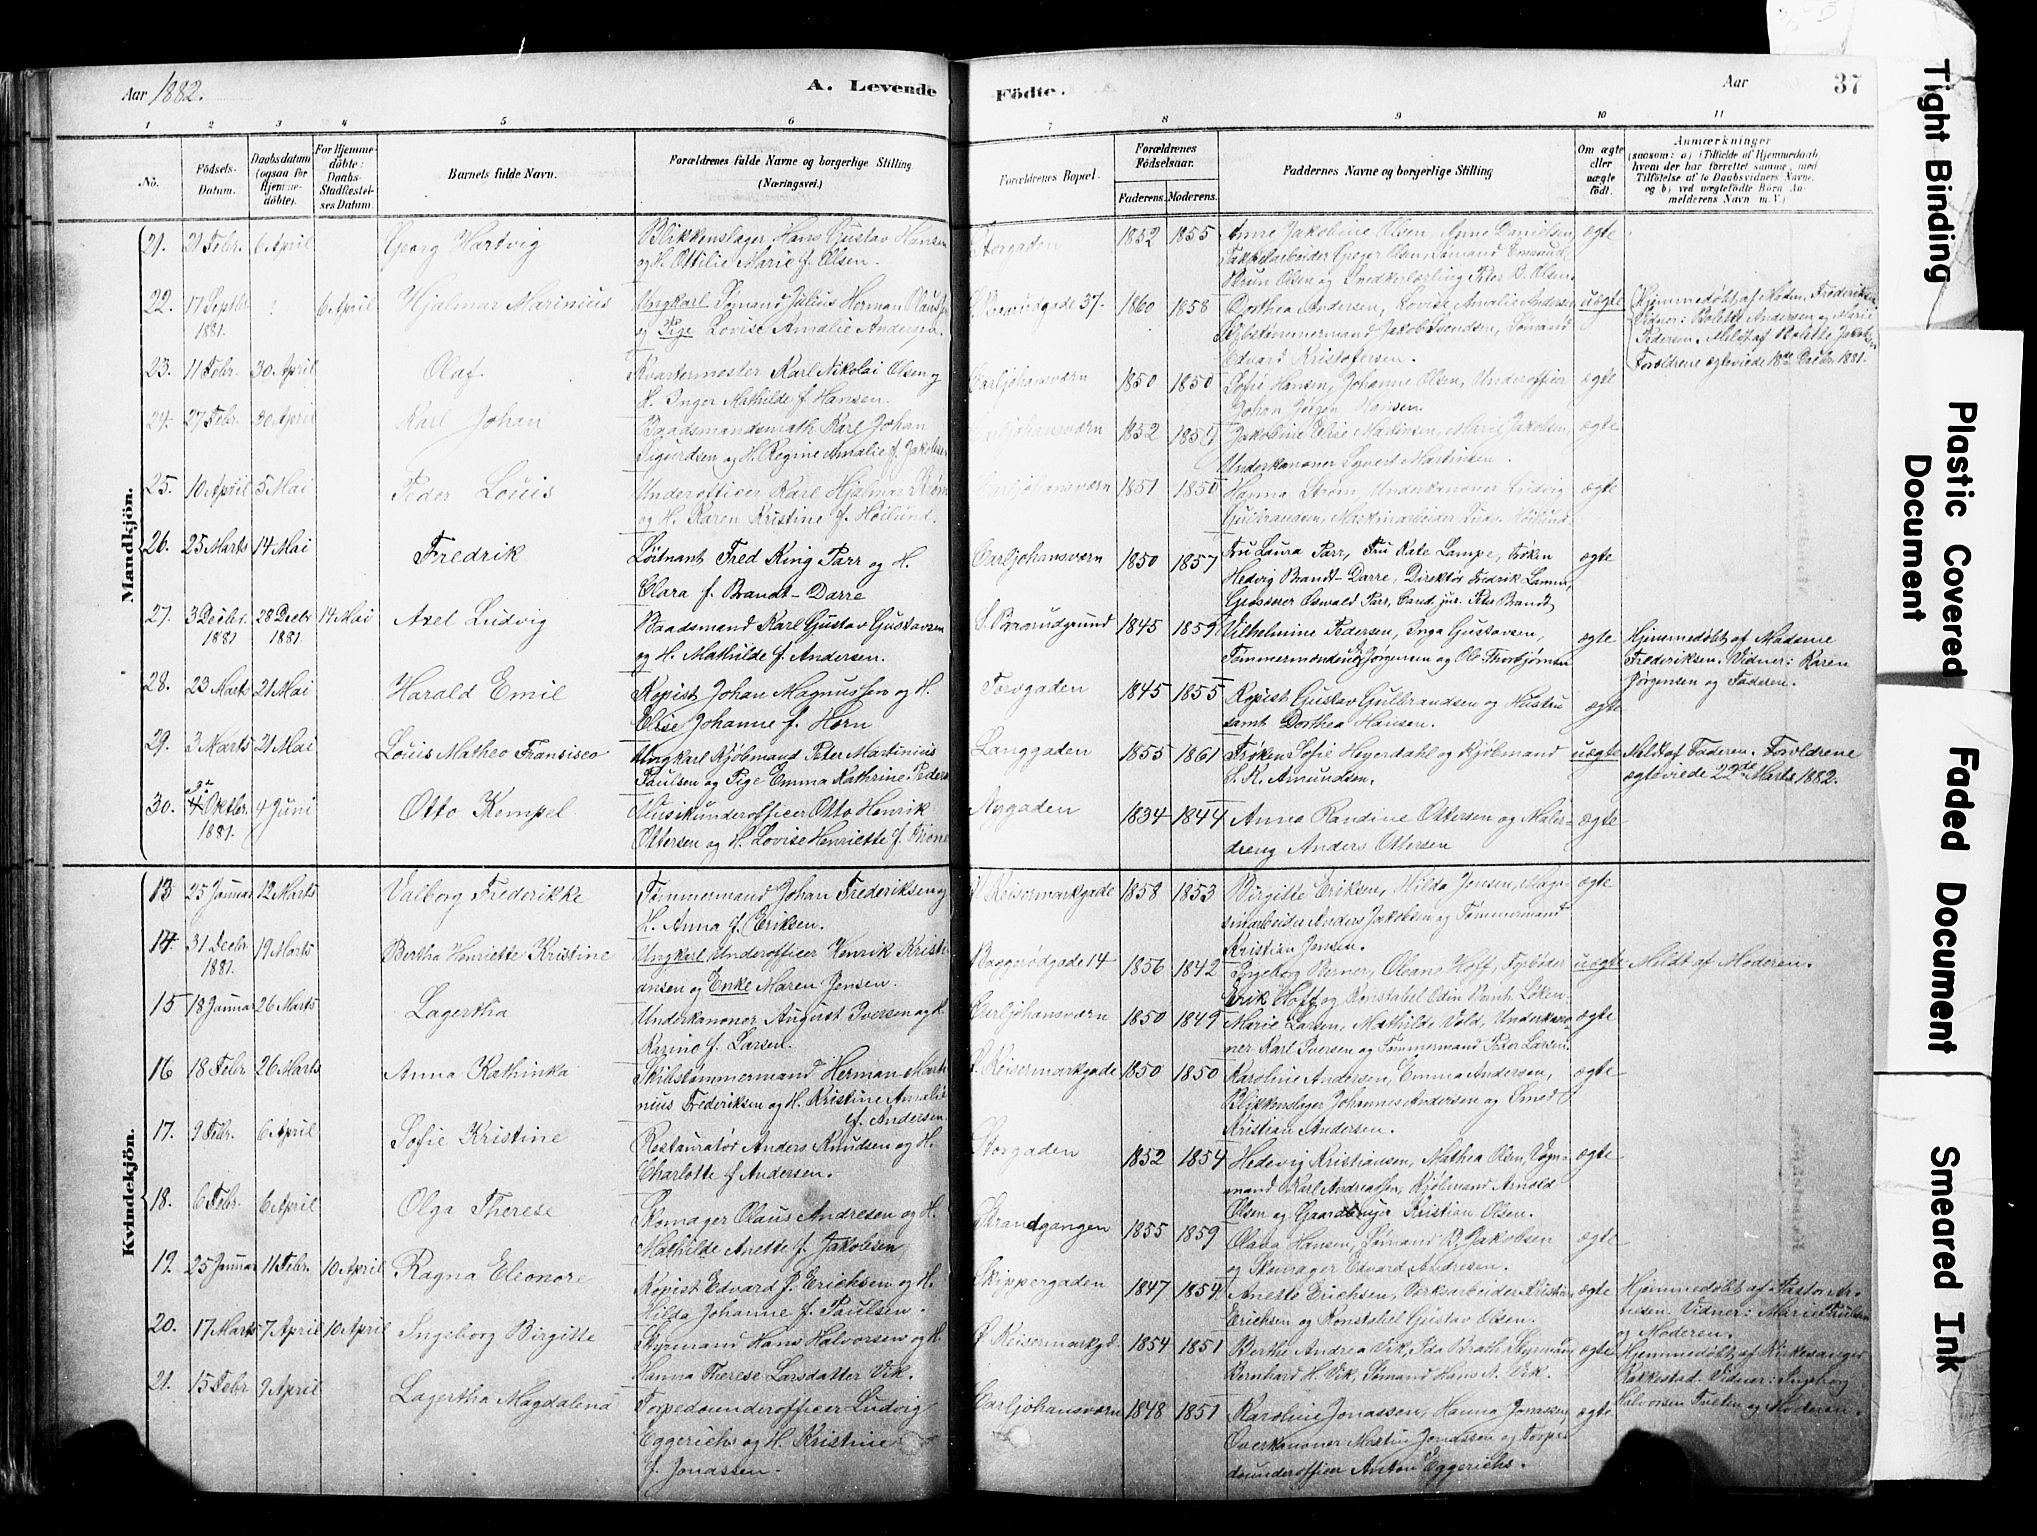 Aar 1882. A. Levende Födte. Aar 37
1 2 3 4 5 6 7 8 9 10 11
No. Födsels-Datum. Daabsdatum (ogsaa for Hjemmedöbte). For Hjemmedöbte: Daabs-Stadfæstelses Datum. Barnets fulde Navn. Forældrenes fulde Navne og borgerlige Stilling (Næringsvei.) Forældrenes Bopæl. Forældrenes Födselsaar. Faderens. Moderens. Faddernes Navne og borgerlige Stilling Om ægte eller uægte født. Anmærkninger (saasom: a) i Tilfælde af Hjemmedaab, hvem der har forrettet samme, med Tilföielse af to Daabsvidners Navne, og b) ved uægtefödte Börn Anmelderens Navn m. V.)
Mandkjön.
21. 21 Febr. 6 April Georg Hartvig Blikkenslager Hans Gustav Hansen og H. Ottilie Marie f. Olsen. Storgaden 1852 1855 Anne Jakobine Olsen, Anne Danielsen, Olsen, Sømand Brun Olsen og Snedkerlærling Peter B. Olsen ægte
22. 17 Septbr. 1881. 6 April Hjalmar Marinius Ungkarl Sømand Julius Herman og Pige Lovise Amalie Andersen. 37. 1860 1858 Dorthea Andersen, Lovise Amalie Andersen, Jakob Svendsen, Sømand Edvard Kristofersen. uægte Hjemmedøbt af Madm. Frederiksen. Vidner: Bolette Andersen og Marie Pedersen. Meldt af Bolette Forældrene ægteviede 18de Decbr. 1881.
23. 11 Febr. 30 April Olaf Kvartermester Karl Nikolai Olsen og H. Inger Mathilde f. Hansen. Carljohansværn 1850 1850 Sofie Hansen, Johanne Olsen, Underofficer Johan Jørgen Hansen. ægte
24. 27 Febr. 30 April Karl Johan Baadsmandsmath Karl Johan Sigurdsen og H. Regine Amalie f. Jakobsen Carljohansværn 1852 Jakobine Elise Martinsen, Marie Jakobsen, Underkanoner Syvert Martinsen. ægte
25. 10 April 5 Mai Peder Louis Underofficer Karl Hjalmar Strøm og H. Karen Kristine f. Høilund. Carljohansværn 1851 1850 Hanna Strøm, Underkanoner Ludvig Gulbransen, Maskinarbeider Høilund ægte
26. 25 Marts 14 Mai Fredrik Løitnant Fred King Parr og H. Clara f. Brandt-Darre Carljohansværn 1850 1857 Fru Laura Parr, Fru Kate Lampe, Frøken Hedvig Brandt-Darre, Direktør Fredrik Lamm, Grosserer Oswald Parr, Cand. jur. Peter Brandt ægte
27. 3 Decbr. 1881 28 Decbr 1881. 14 Mai Axel Ludvig Baadsmand Karl Gustav Gustavsen og H. Mathilde f. Andersen. 1845 1859 Vilhelmine Pedersen, Inga Gustavsen, Tømmermændene Jørgensen og Ole Thorbjørnsen ægte Hjemmedøbt af Madame Frederiksen. Vidner: Karen Jørgensen og Faderen.
28. 23 Marts 21 Mai Harald Emil Kopist Johan Magnussen og H. Elise Johanne f. Horn Torvgaden 1845 1855 Kopist Gustav Gulbrandsen og Hustru samt Dorthea Hansen. ægte
29. 3 Marts 21 Mai Louis Matheo Fransisco Ungkarl Kjøbmand Peter Martinius Paulsen og Pige Emma Kathrine Peders Langgaden 1855 1861 Frøken Sofie Heyerdahl og Kjøbmand S. K. Amundsen. uægte Meldt af Faderen. Forældrene ægteviede 22de Marts 1882.
30. Oktbr. 1881. 4 Juni Otto Kempel Musikunderofficer Otto Henrik Ottersen og H. Lovise Henriette f. Nygaden 1834 1844 Anna Randine Ottersen og Malerdreng Anders Ottersen ægte
Kvindekjön.
13 25 Januar 12 Marts Valborg Frederikke Tømmermand Johan Frederiksen og H. Anna f. Eriksen. Ø. Keisermarkgade 1858 1853 Birgitte Eriksen, Hilda Jensen, Magasinarbeider Anders Jakobsen og Tømmermand Kristian Jensen. ægte
14 31 Decbr. 1881. 19 Marts Bertha Henriette Kristine Ungkarl Underofficer Henrik Kristiansen og Enke Maren Jensen. Baggerødgade 14 1856 1842 Ingeborg Berner, Oleane Hoff, Fyrbøder Erik Hoff og Konstabel Odin Løken. uægte Meldt af Moderen.
15 18 Januar 26 Marts Lagertha Underkanoner August Iversen og H. Karine f. Larsen. Carljohansværn 1850 1849 Marie Larsen, Mathilde Vold, Underkanoner Karl Iversen og Tømmermand Peter Larsen. ægte
16 18 Febr. 26 Marts Anna Kathinka Skibstømmermand Herman Martinius Frederiksen og H. Kristine Amalie f. Andersen Ø. Keisermarkgade 1850 1850 Karoline Andersen, Emma Andersen, Blikkenslager Johannes Andersen og Smed Kristian Andersen. ægte
17. 9 Febr. 6 April Sofie Kristine Restauratør Anders Knudsen og H. Charlotte f. Andersen. Storgaden 1852 1854 Hedevig Kristiansen, Mathea Olsen, Vognmand Karl Andreassen, Kjøbmand Arnold Olsen og Gaardbruger Kristian Olsen. ægte
18. 6 Febr. 6 April Olga Therese Skomager Olaus Andresen og H. Mathilde Anette f. Jakobsen Strandgangen 1855 1859 Olava Hansen, Sømand B. Jakobsen og Skomager Edvard Andresen. ægte
19. 25 Januar 11 Febr. 10 April Ragna Eleonore Kopist Edvard J. Erichsen og H. Hilda Johanne f. Paulsen. Skippergaden 1847 1854 Anette Erichsen, Verksarbeider Kristian Erichsen og Konstabel Gustav Olsen. ægte Hjemmedøbt af Pastor Vidner: Marie Paulsen og Moderen.
20. 17 Marts 7 April 10 April Ingeborg Birgitte Styrmand Hans Halvorsen og H. Hanna Therese Larsdatter Vik. Ø. Keisermarkgd. 1854 1851 Berthe Andrea Vik, Ida Brath, Styrmand Bernhard H. Vik, Sømand Hans A. Vik. ægte Hjemmedøbt af Kirkesanger Rakkestad. Vidner: Ingeborg Halvorsen og Moderen.
21. 15 Febr 9 April Lagertha Magdalena Torpedounderofficer Ludvig Eggerichs og H. Kristine f. Jonassen. Carljohansværn 1848 1851 Karoline Jonassen, Hanna Jonassen, Overkanoner Martin Jonassen og Torpedounderofficer Anton Eggerichs. ægte
Tight Binding
Plastic Covered Document
Faded Document
Smeared Ink